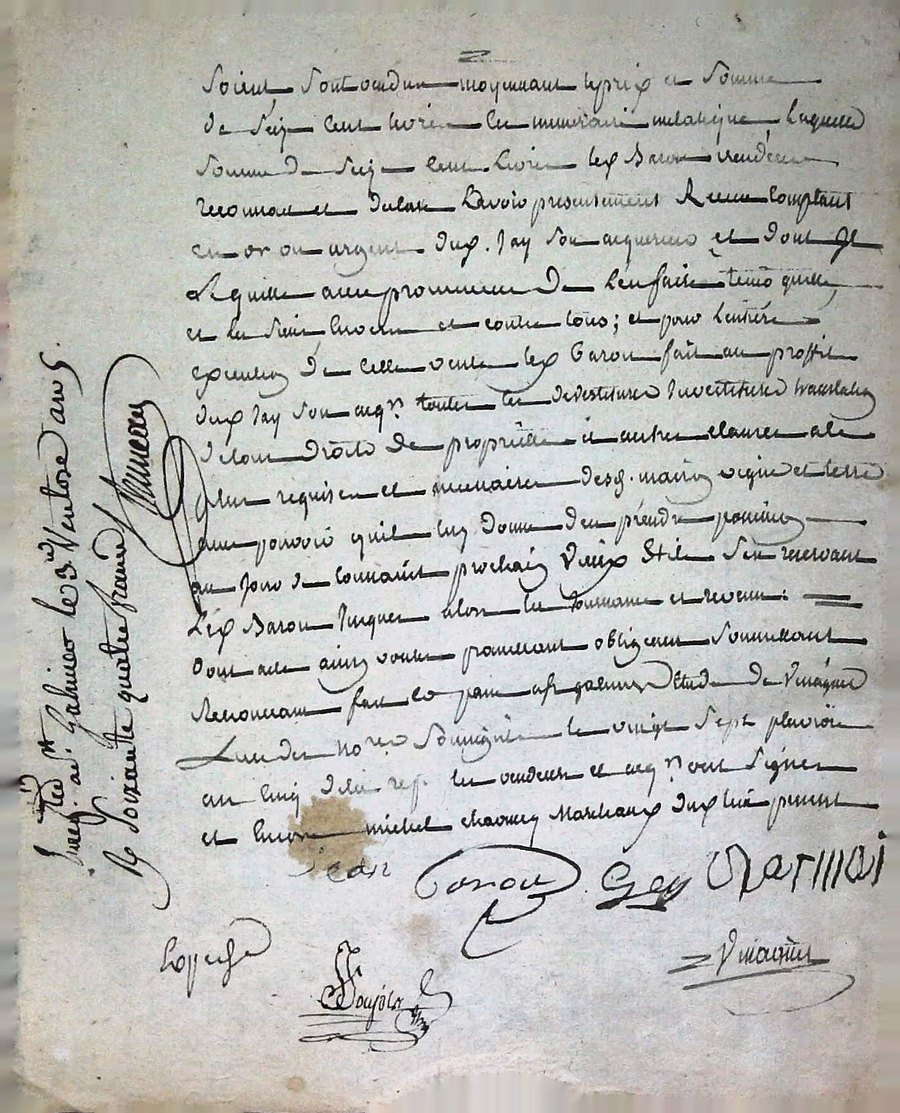 Soient Sont vendue moyennant le prix et Somme
de Seize Cent livres En numeraire metalique Laquelle
Somme de Seize Cent Livres lex Baron vendeur
reconnoit et declare L'avoir presentement Receue Comptant
en or ou argent dux. Jay Son acquereur et dont Il
Le quitte avec promesse de L'en faire tenir quitte
et les Siens Envers et contre tous; et pour L'entiere
execution de Cette vente lex Baron fait au proffit
dux Jay Son acqr. toutes les devestiture Investiture translation
de tous droits de proprietté et autres clauses a le
plus requises et necessaires desd. maison vigne et terre
avec pouvoir qu'il luy donne d'en prendre possession
au Jour de toussaint prochain Vieux Stile S'en reservant
L'ex Baron Jusques alors les Jouissance et revenus.
Dont acte ainsy voulu promettant obligeant Soumettant
Renonceant fait et passé a Etude de Vinagnet
L'un des Nores Soussignés le vingt Sept pluviose
an Cinq de la rep. les vendeur et acqr. ont Signés
et Encore michel Marchaux dux lieu present
Jean Baron Gey
Vinagnet
Soujola
Enregtré a Galmier le 3 Ventose an 5.
R Soixante quatre francs